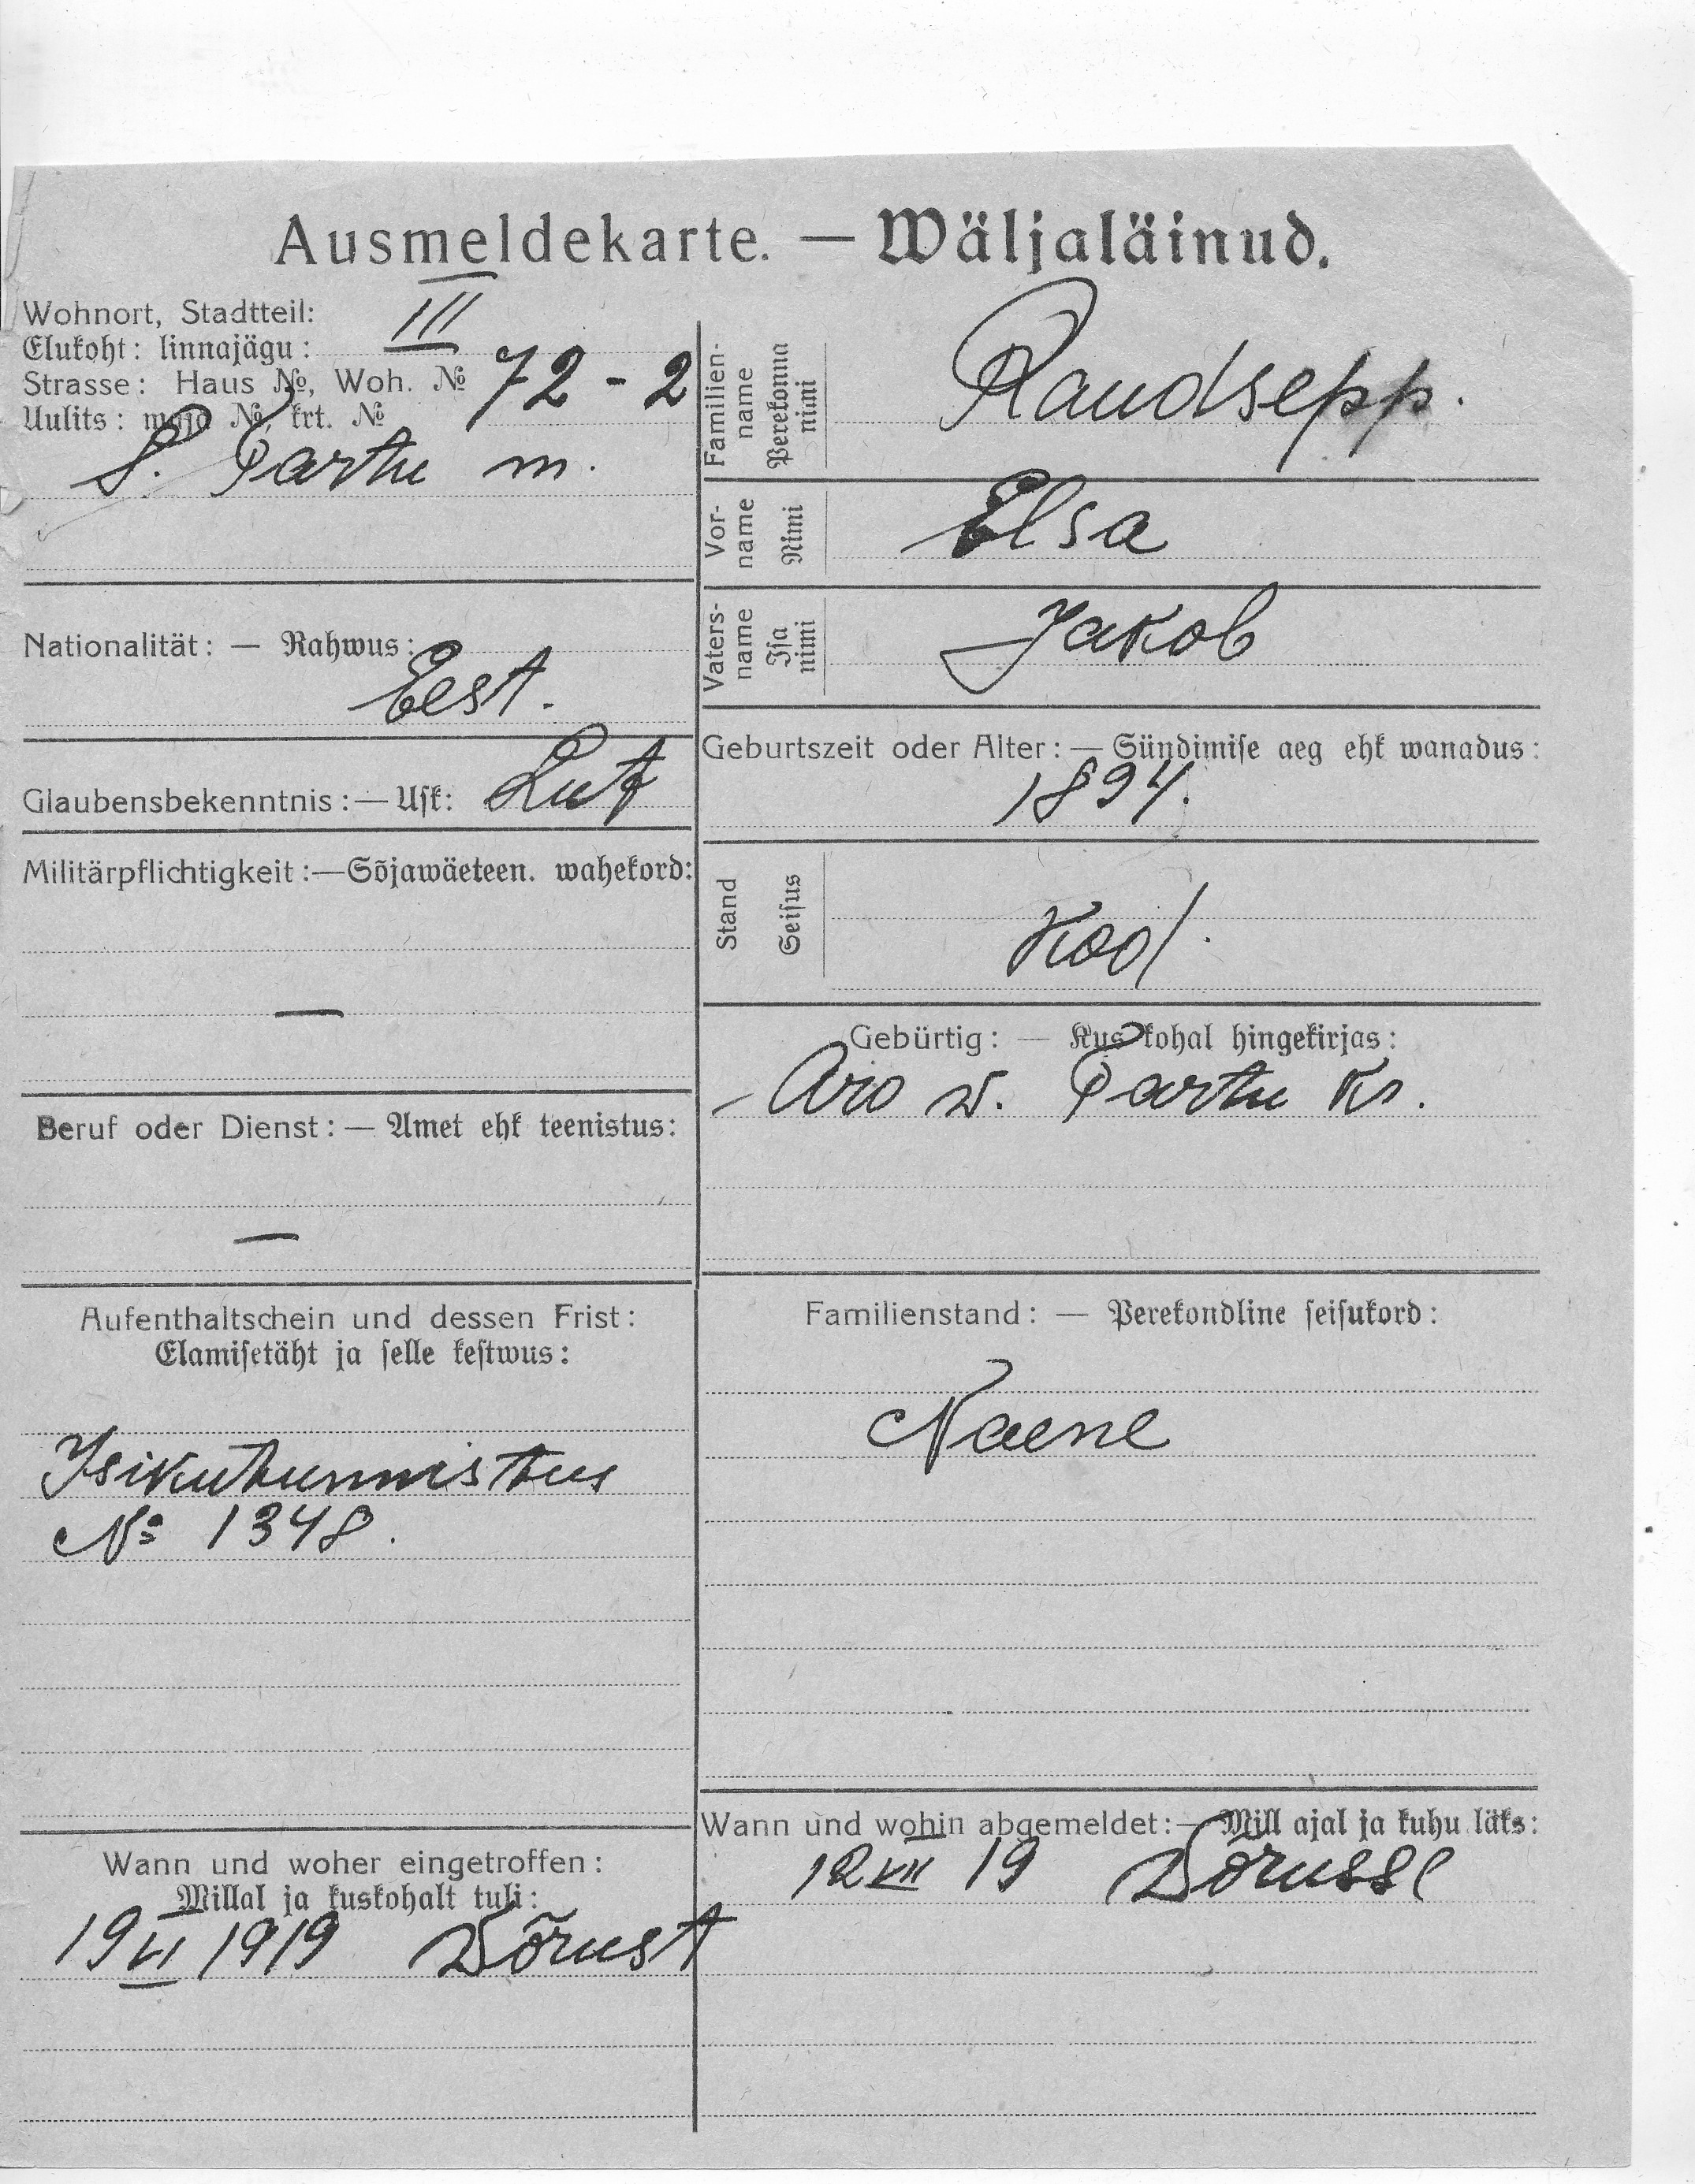 Ausmeldekarte. — Wäljaläinud.
Wohnort, Stadtteil:
Elukoht: linnajägu: III
Strasse: Haus №, Woh. № 72 - 2
Uulits: maja №, krt. №
S. Partu m.
Nationalität: — Rahwus:
Eest.
Glaubensbekenntnis: — Usk: Lut
Militärpflichtigkeit: — Sõjawäeteen. wahekord:
—
Beruf oder Dienst: — Amet ehk teenistus:
—
Aufenthaltschein und dessen Frist:
Elamisetäht ja selle kestwus:
Isikutunnistus
№ 1348.
Wann und woher eingetroffen:
Millal ja kuskohalt tuli:
19 VI 1919 Võrust
Familien-name Perekonna nimi Raudsepp.
Vor-name Nimi Elsa
Vaters-name Isa nimi Jakob
Geburtszeit oder Alter: — Sündimise aeg ehk wanadus:
1894.
Stand Seisus
Kod.
Gebürtig: — Kus kohal hingekirjas:
w. Partu kr.
Familienstand: — Perekondline seisukord:
Naene
Wann und wohin abgemeldet: — Mill ajal ja kuhu läks:
12 VII 19 Võrusse